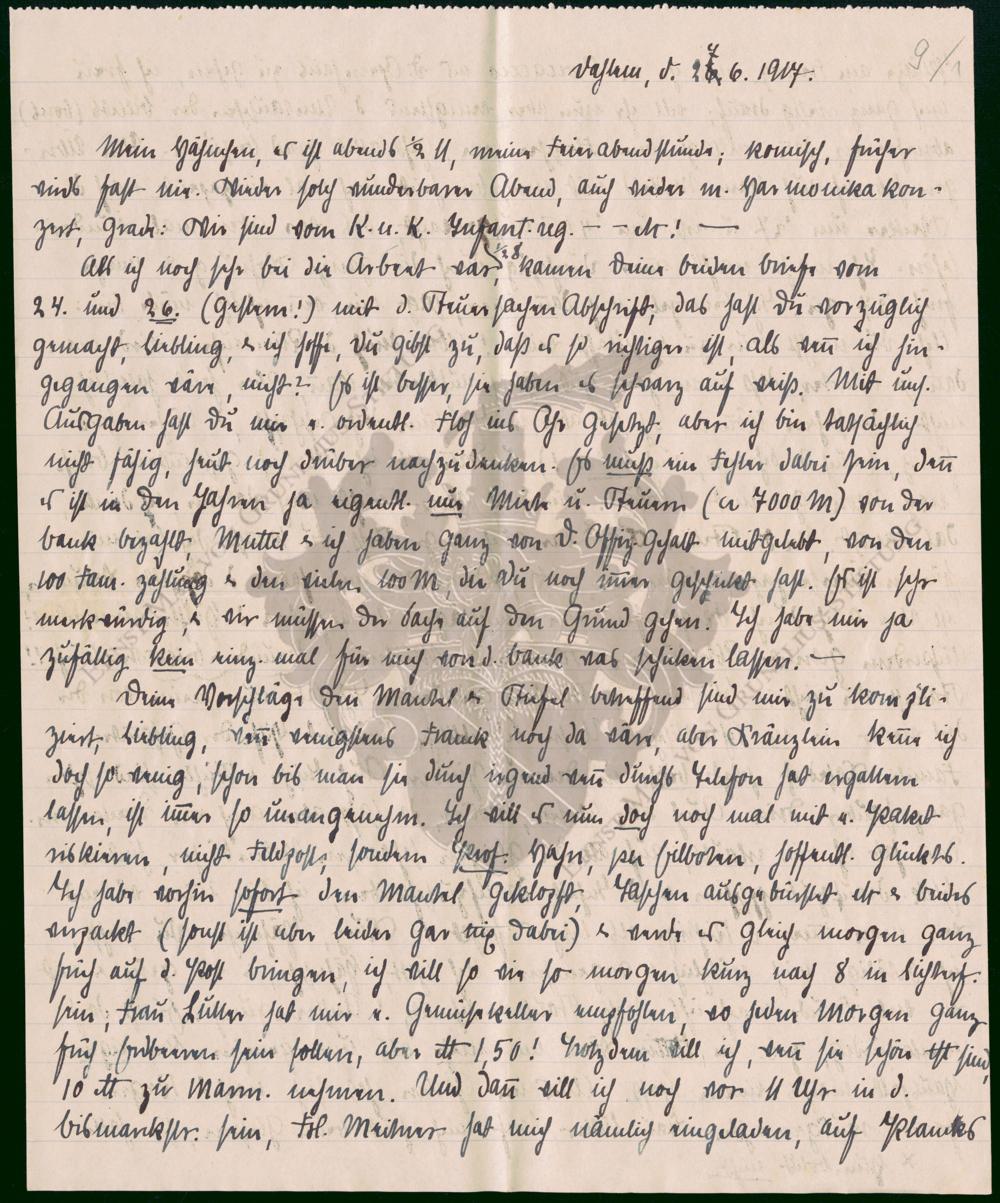 Dahlem, d. 27. 6. 1917.
9/1
Mein Hähnchen, es ist abends ½ 11, meine Feierabendstunde; komisch, früher
wirds fast nie. Wieder solch wunderbarer Abend, auch wieder m. Harmonika kon-
zert, grade: Wir sind vom K. u. K. Infant. reg. – – etc! —
Als ich noch sehr bei die Arbeet war, ½ 8 kamen Deine beiden Briefe vom
24. und 26. (gestern!) mit d. Steuersachen Abschrift, das hast Du vorzüglich
gemacht, Liebling, & ich hoffe, Du gibst zu, daß es so richtiger ist, als wen̄ ich hin-
gegangen wäre, nicht? Es ist besser, sie haben es schwarz auf weiß. Mit uns.
Ausgaben hast Du mir e. ordentl. Floh ins Ohr gesetzt, aber ich bin tatsächlich
nicht fähig, heut noch drüber nachzudenken. Es muß ein Fehler dabei sein, den̄
es ist in den Jahren ja eigentl. nur Miete u. Steuern (ca 7000 M) von der
Bank bezahlt, Muttel & ich haben ganz von D. Offiz. Gehalt mitgelebt, von den
100 Fam. zahlung & den vielen 100 M, die Du noch im̄er geschickt hast. Es ist sehr
merkwürdig, & wir müssen der Sache auf den Grund gehen. Ich habe mir ja
zufällig kein einz. mal für mich von d. Bank was schicken lassen. —
Deine Vorschläge den Mantel & Stiefel betreffend sind mir zu kompli-
ziert, Liebling, wen̄ wenigstens Franck noch da wäre, aber Kränzlein ken̄e ich
doch so wenig, schon bis man sie durch irgend wen̄ durchs Telefon hat ergattern
lassen, ist im̄er so unangenehm. Ich will es nun doch noch mal mit e. Paket
riskieren, nicht Feldpost, sondern Prof. Hahn, per Eilboten, hoffentl. glückts.
Ich habe vorhin sofort den Mantel geklopft, Taschen ausgebürstet etc & beides
verpackt (sonst ist aber leider gar nix dabei) & werde es gleich morgen ganz
früh auf d. Post bringen, ich will so wie so morgen kurz nach 8 in Lichterf.
sein; Frau Luther hat mir e. Gemüsekeller empfohlen, wo jeden Morgen ganz
früh Erdbeeren sein sollen, aber ℔ 1,50! Trotzdem will ich, wen̄ sie schön sind,
10 ℔ zu Marm. nehmen. Und dan̄ will ich noch vor 11 Uhr in d.
Bismarckstr. sein, Frl. Meitner hat mich nämlich eingeladen, auf Plancks